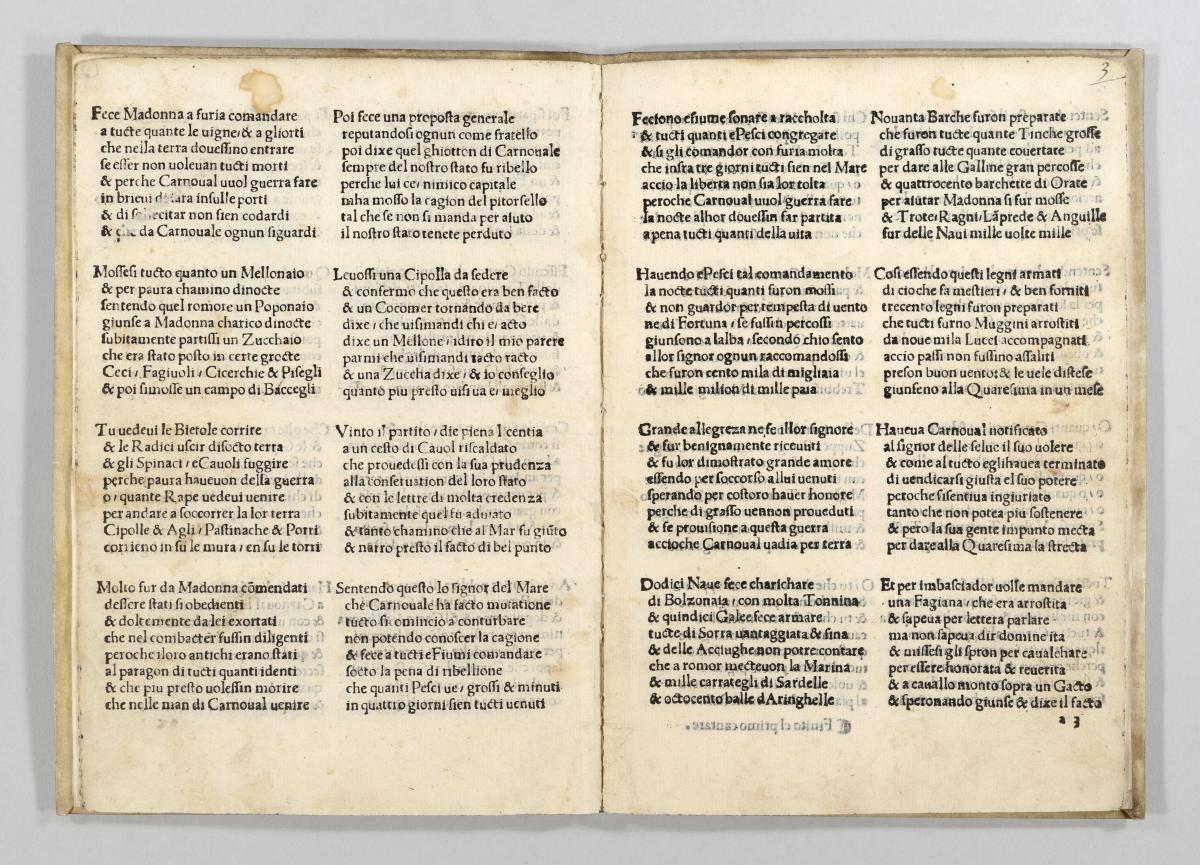 Fece Madonna a furia comandare
a tucte quante le uigne/& a gliorti
che nella terra douessino entrare
se esser non uoleuan tucti morti
& perche Carnoual uuol guerra fare
in brieui insulle porti
& di non sien codardi
& da Carnouale ognun siguardi
Mossesi tucto quanto un Mellonaio
& per paura chamino dinocte
sentendo quel romore un Poponaio
giunse a Madonna charico dinocte
subitamente partissi un Zucchaio
che era stato posto in certe grocte
Ceci/Fagiuoli/Cicerchie & Pisegli
& poi simosse un campo di Baccegli
Tu uedeui le Bietole corrire
& le Radici uscir disocto terra
& gli Spinaci/eCauoli fuggire
perche paura haueuon della guerra
o/quante Rape uedeui uenire
per andare a soccorrer la lor terra
Cipolle & Agli/Pastinache & Porri
corrieno in su le mura/en su le torri
Molto fur da Madonna cõmendati
dessere stati si obedienti
& doltemente da lei exortati
che nel combacter fussin diligenti
peroche iloro antichi erano stati
al paragon di tucti quanti identi
& che piu presto uolessin morire
che nelle man di Carnoual uenire
Poi fece una proposta generale
reputandosi ognun come fratello
poi dixe quel ghiotton di Carnouale
sempre del nostro stato fu ribello
perche lui ce/nimico capitale
naha mosso la cagion del pitorsello
tal che se non si manda per aiuto
il nostro stato tenete perduto
Leuossi una Cipolla da sedere
& confermo che questo era ben facto
& un Cocomer tornando da bere
dixe/che uisimandi chi e/acto
dixe un Mellone/idiro il mio parere
parmi che uisimandi tacto racto
& una Zuccha dixe/& io conseglio
quanto piu presto uisi ua e/meglio
Vinto il partito/die piena licentia
a un cesto di Cauol riscaldato
che prouedessi con la sua prudenza
alla conseruation del loro stato
& con le lettre di molta credenza
subitamente quel fu aduiato
& tanto chamino che al Mar fu giũto
& narro presto il facto di bel punto
Sentendo questo lo signor del Mare
che Carnouale ha facto mutatione
tucto si comincio a conturbare
non potendo conoscer la cagione
& fece a tucti eFiumi comandare
socto la pena di ribellione
che quanti Pesci ue/grossi & minuti
in quattro giorni sien tucti uenuti
3
Feciono efiume sonare a raccholta
& tucti quanti ePesci congregare
& si gli comandor con furia molta
che infra tre giorni tucti sien nel Mare
accio la liberta non sia lor tolta
peroche Carnoual uuol guerra fare
la nocte alhor douessin far partita
a pena tucti quanti della uita
Hauendo ePesci tal comandamento
la nocte tucti quanti furon mossi
& non guardor per tempesta di uento
ne di Fortuna/se fussin percossi
giunsono a lalba/secondo chio sento
allor signor ognun raccomandossi
che furon cento mila di migliaia
& mille milion di mille paia
Grande allegreza ne fe illor signore
& fur benignamente riceuuti
& fu lor dimostrato grande amore
essendo per soccorso allui uenuti
sperando per costoro hauer honore
perche di grasso uennon proueduti
& fe prouisione a questa guerra
accioche Carnoual uadia per terra
Dodici Naue fece charichare
di Bolzonaia/con molta Tonnina
& quindici Galee fece armare
tucte di Sorra uantaggiata & fina
& delle Acciughe non potre contare
che a romor mecteuon la Marina
& mille carrategli di Sardelle
& octocento balle dAringhelle
Nouanta Barche furon preparate
che furon tucte quante Tinche grosse
di grasso tucte quante couertate
per dare alle Galline gran percosse
& quattrocento barchette di Orate
per aiutar Madonna si fur mosse
& Trote/Ragni/Lãprede & Anguille
fur delle Naui mille uolte mille
Cosi essendo questi legni armati
di cioche fa mestieri/& ben forniti
trecento legni furon preparati
che tucti furno Muggini arrostiti
da noue mila Lucci accompagnati
accio passi non fussino assaliti
preson buon uento:& le uele distese
giunseno alla Quaresima in un mese
Haueua Carnoual notificato
al signor delle selue il suo uolere
& come al tucto eglihauea terminato
di uendicarsi giusta el suo potere
peroche sisentiua ingiuriato
tanto che non potea piu sostenere
& pero la sua gente impunto mecta
per dare alla Quaresima la strecta
Et per imbasciador uolle mandare
una Fagiana/che era arrostita
& sapeua per lettera parlare
ma non sapeua dir domine ita
& missesi gli spron per caualchare
per essere honorata & reuerita
& a cauallo monto sopra un Gacto
& speronando giunse & dixe il facto
a 3
Finito el primo cantare.